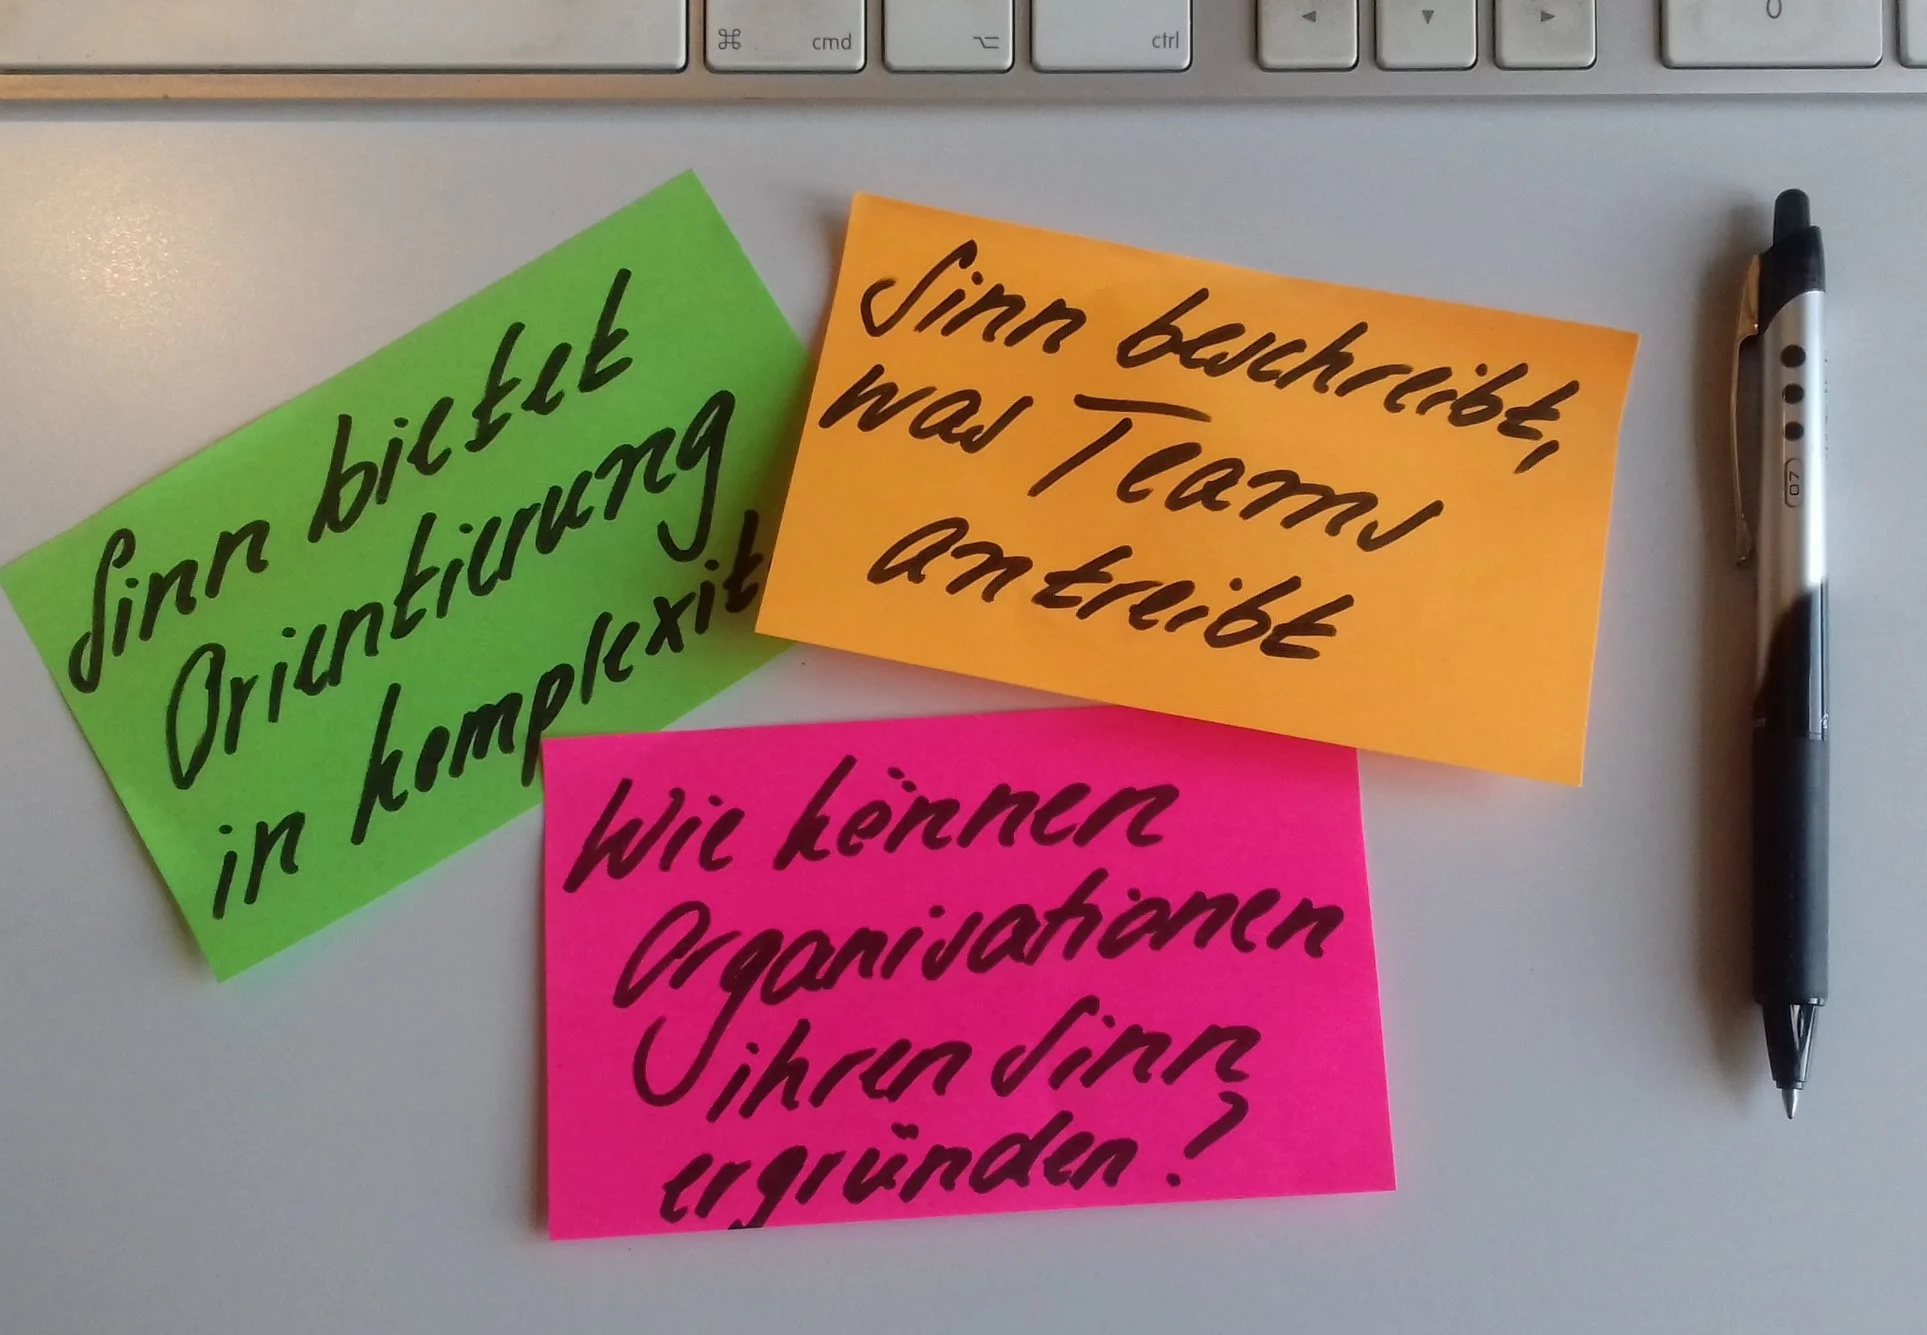 cmd
ctrl
Sinn bietet
Orientierung
in komplexit
Sinn beschreibt,
was Teams
antreibt
Wie können
Organisationen
ihren Sinn
ergründen?
07